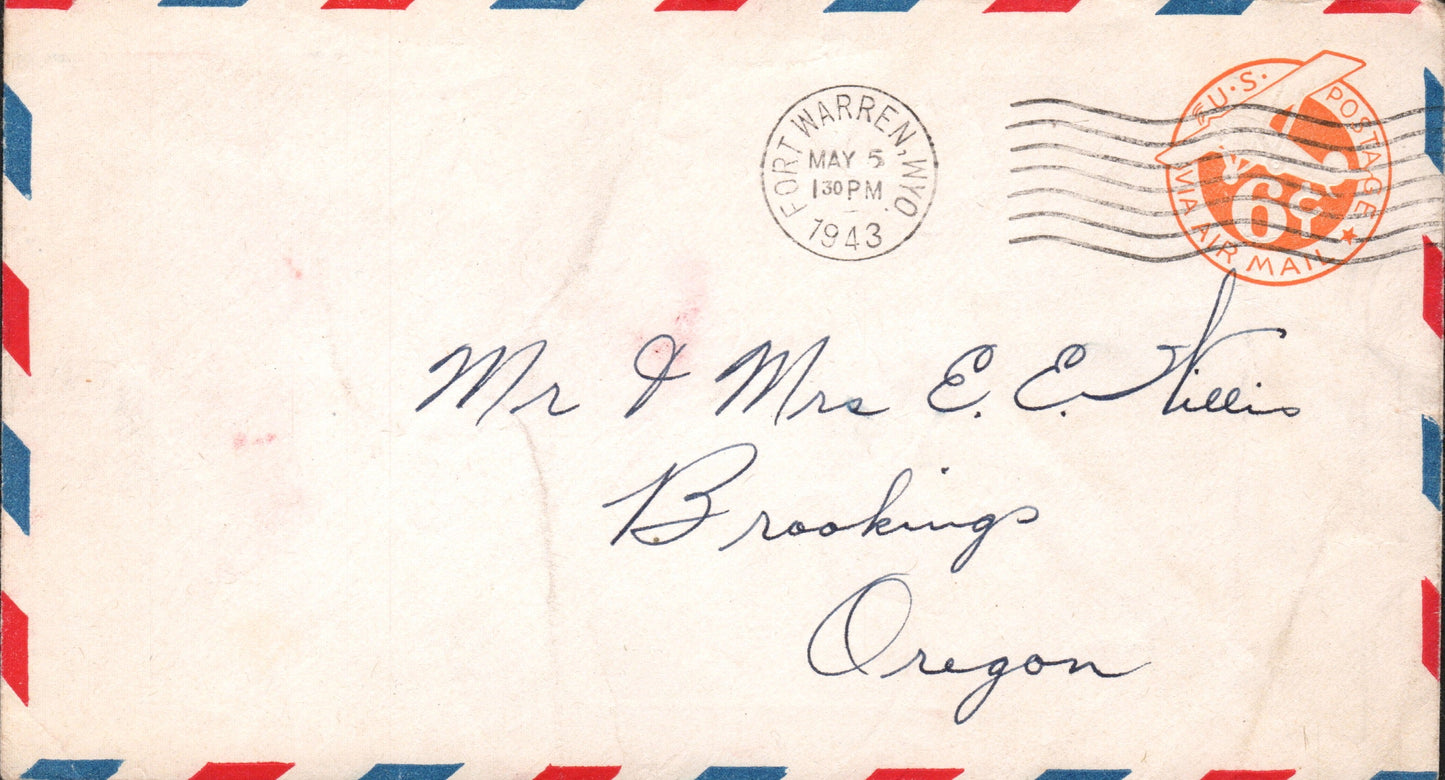 FORT WARREN, WYO.
MAY 5
1 30 PM
1943
U.S. POSTAGE
6¢
VIA AIR MAIL
Mr & Mrs E. E. Willis
Brookings
Oregon